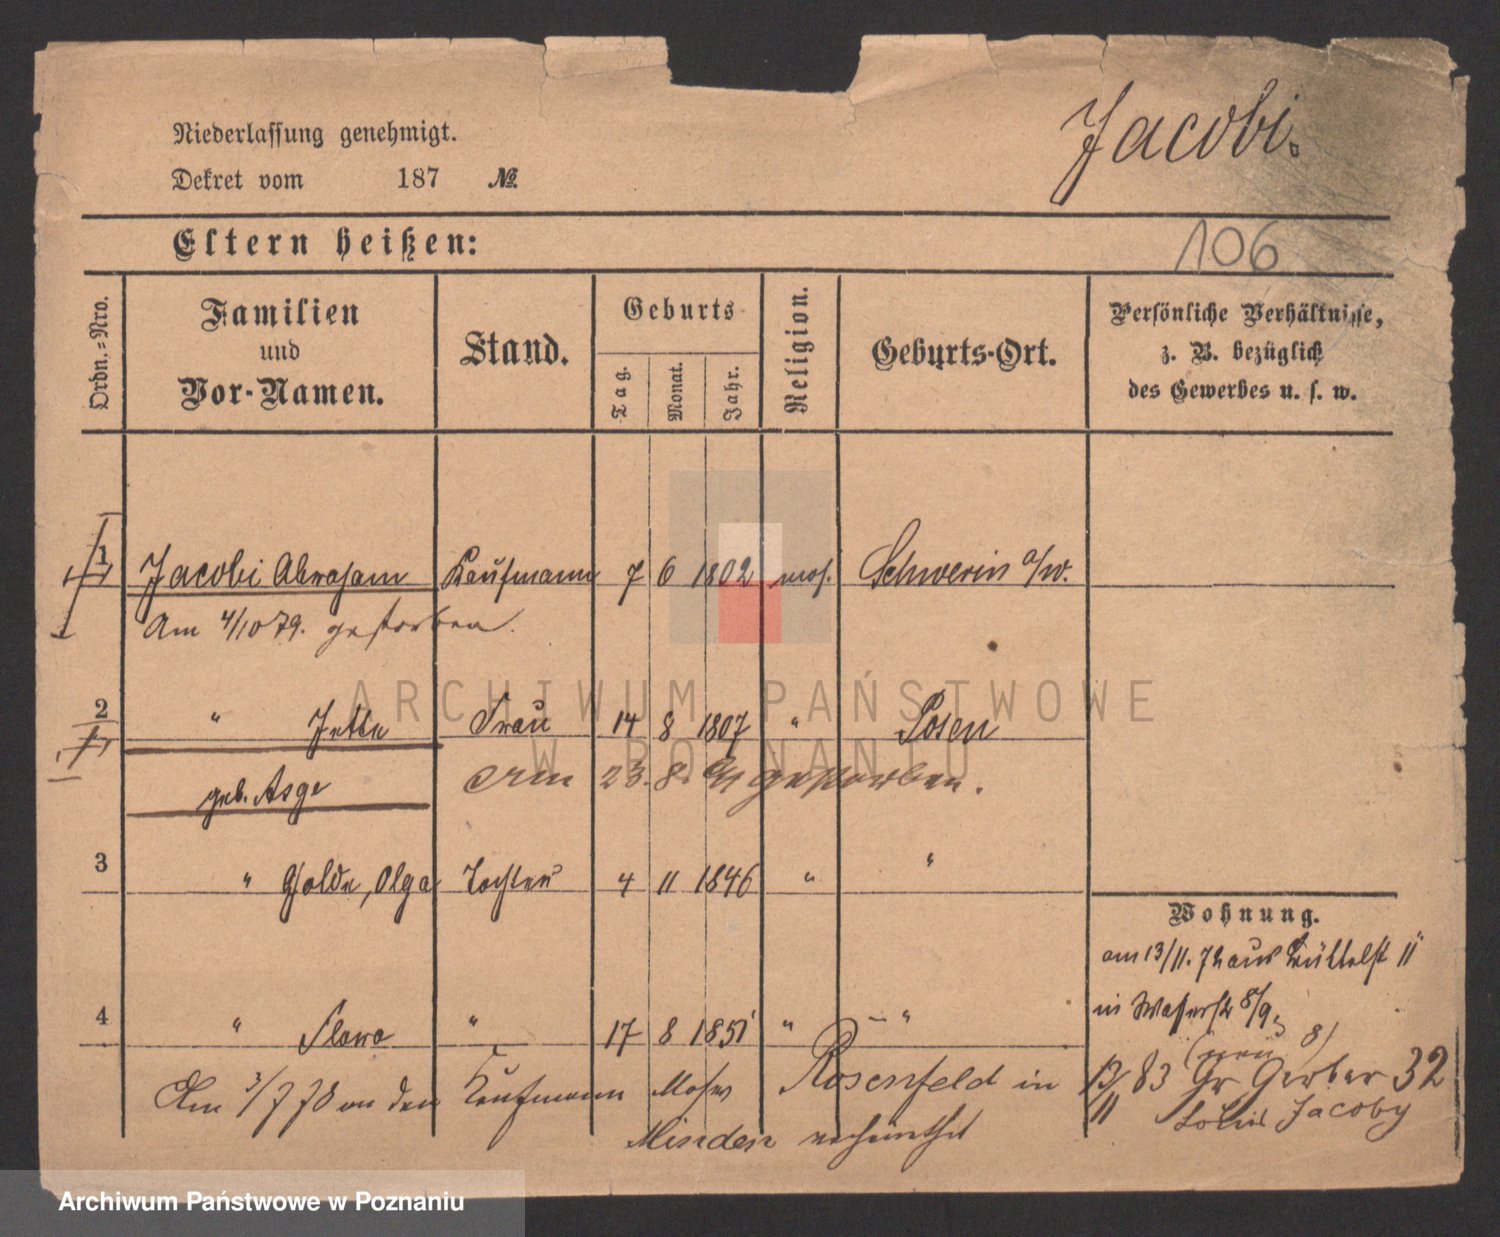 Jacobi.
Niederlassung genehmigt.
Dekret vom 187 №
106
Eltern heißen:
Ordn.-Nro.
Familien und Vor-Namen.
Stand.
Geburts
Tag. Monat. Jahr.
Religion.
Geburts-Ort.
Persönliche Verhältnisse,
z. B. bezüglich
des Gewerbes u. s. w.
1 Jacobi Abraham Kaufmann 7 6 1802 mos. Schwerin a/w.
Am 4/10 79. gestorben.
2 " Jette Frau 14 8 1807 " Posen
geb. Asge Am 23. 8. gestorben.
3 " Golde, Olga Tochter 4 11 1846 " "
Wohnung.
am 13/11. 72 aus Büttelst 11
in Wasserstr 8/9
4 " Flora " 17 8 1851 " — "
(neu 8)
13/11 83 Gr Gerber 32
Louis Jacoby
Am 3/7 78 an den Kaufmann Moses Rosenfeld in
Minden verheirathet
ARCHIWUM PAŃSTWOWE
W POZNANIU
Archiwum Państwowe w Poznaniu